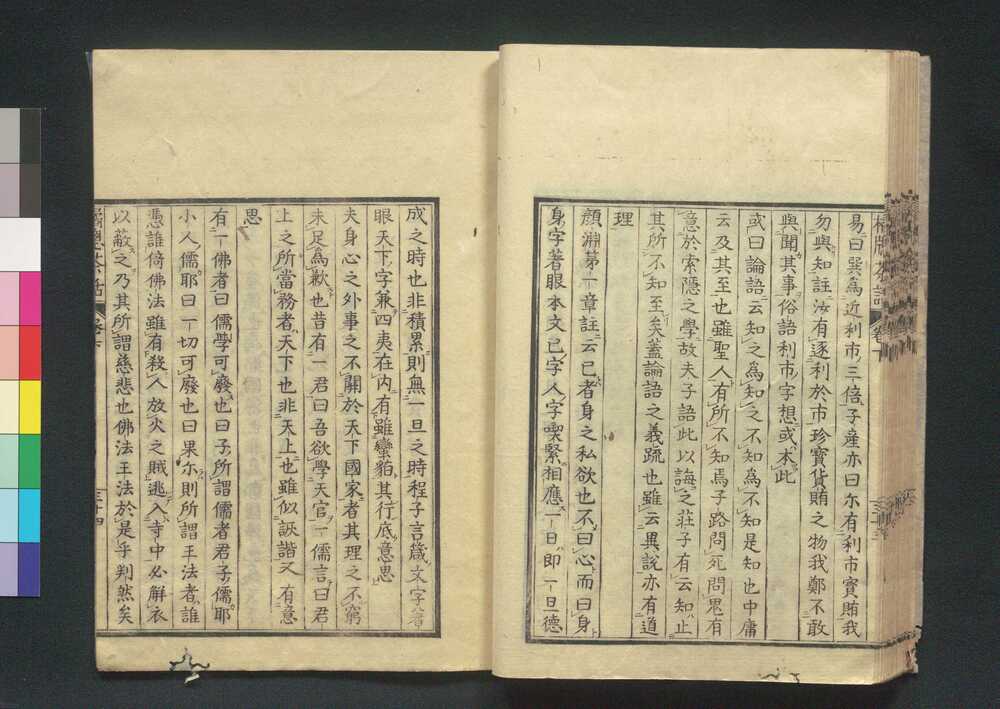 易曰巽為近利市三倍子產亦曰尓有利市寶賄我
勿與知註汝有逐利於市珍寶貨賄之物我鄭不敢
與聞其事俗語利市字想或本此
或曰論語云知之為知之不知為不知是知也中庸
云及其至也雖聖人有所不知焉子路問死問鬼有
意於索隱之學故夫子語此以誨之莊子有云知止
其所不知至矣蓋論語之義疏也雖云異說亦有道
理
顏淵第十章註云己者身之私欲也不曰心而曰身
身字著眼本文己字人字喫緊相應一日即一旦德
成之時也非積累則無一旦之時程子言箴文字著
眼天下字兼四夷在內有雖蠻貊其行底意思
夫身心之外事之不關於天下國家者其理之不窮
未足為歉也昔有一君曰吾欲學天官一儒言曰君
上之所當務者天下也非天上也雖似詼諧又有意
思
有一佛者曰儒學可廢也曰子所謂儒者君子儒耶
小人儒耶曰一切可廢也曰果尓則所謂王法者誰
憑誰倚佛法雖有殺人放火之賊逃入寺中必解衣
以蔽之乃其所謂慈悲也佛法王法於是乎判然矣
橘窓茶話
卷下
三十四